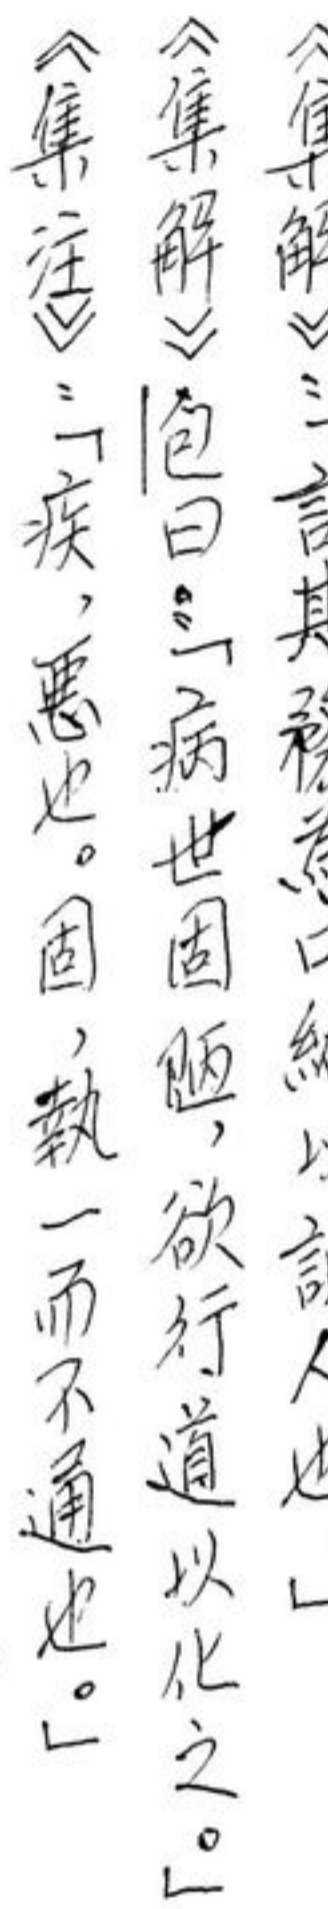 《集解》：「言其務為口給以訓人也」
《集解》包曰：「病世固陋，欲行道以化之。」
《集注》：「疾，惡也。固，執一而不通也。」